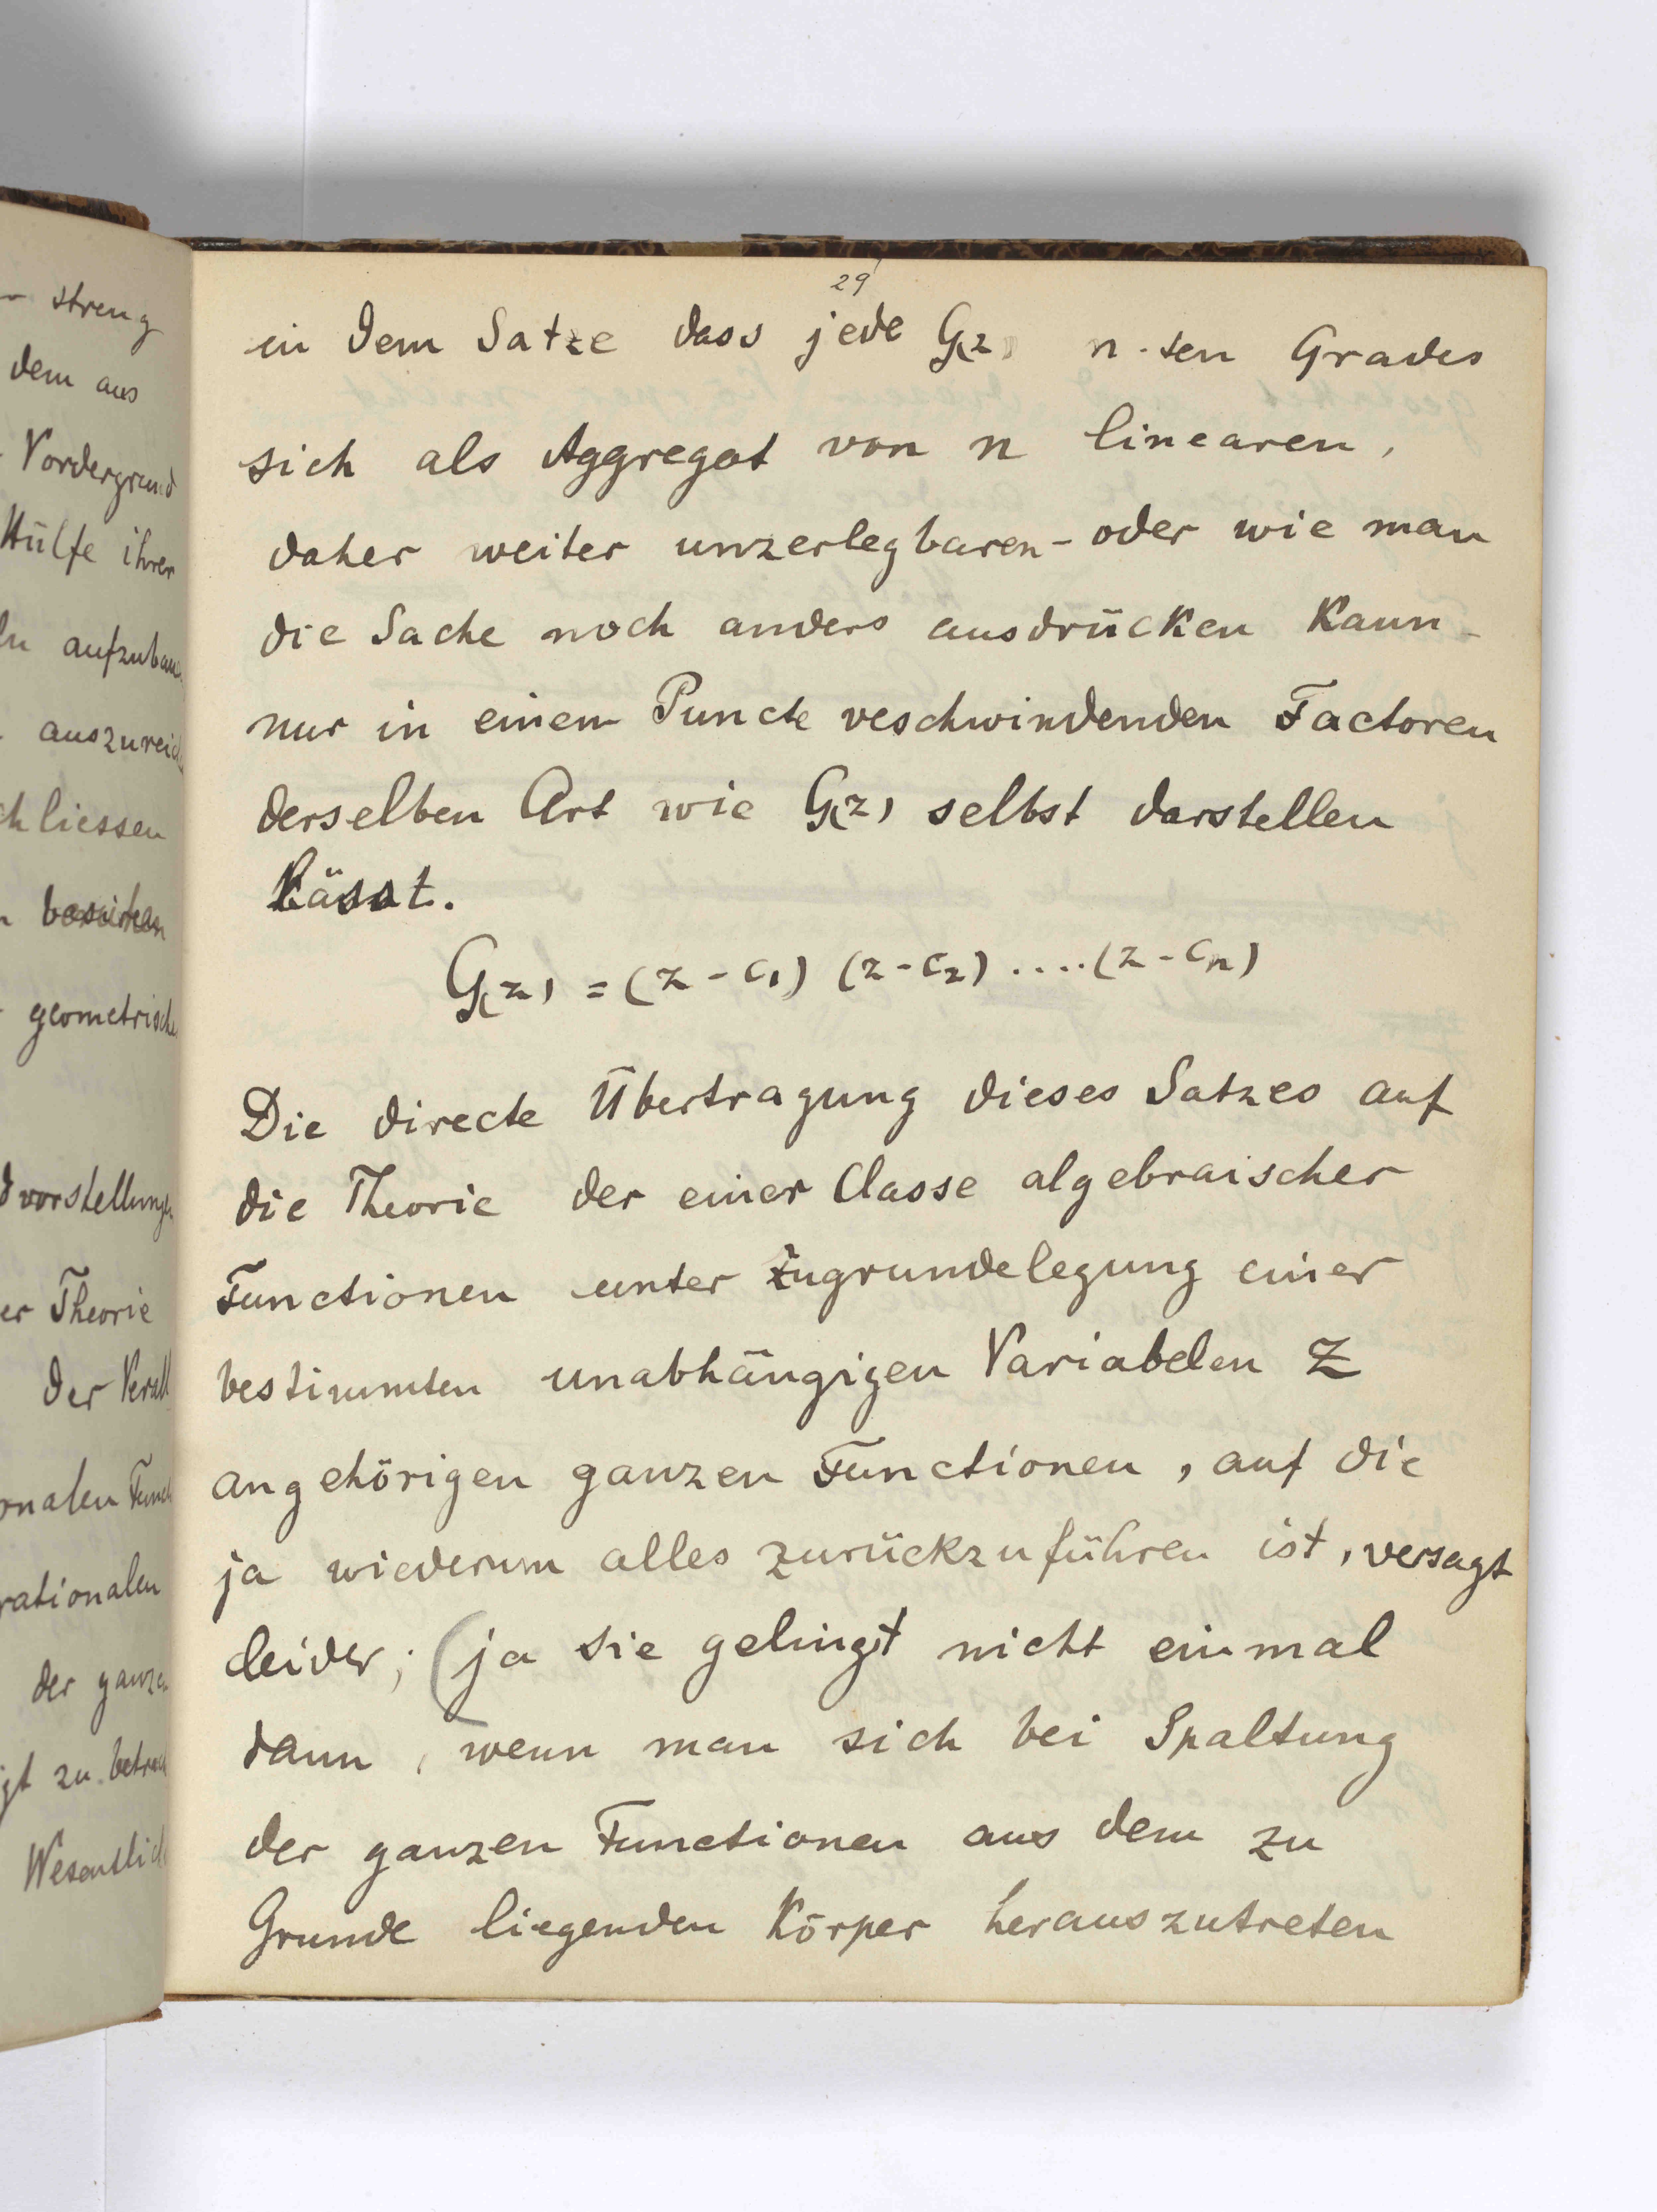 streng
dem aus
Vordergrund
Hülfe ihrer
aufzubau
auszureich
chliessen
geometrische
vorstellung
er Theorie
der
onalen Funct
rationalen
der ganze
gt zu betrach
Wesentlich
29
in dem Satze dass jede G(z) n-ten Grades
sich als Aggregat von n linearen,
daher weiter unzerlegbaren - oder wie man
die Sache noch anders ausdrücken kann -
nur in einem Puncte veschwindenden Factoren
derselben Art wie G(z) selbst darstellen
lässt.
G(z) = (z - c₁) (z - c₂) .... (z - cₙ)
Die directe Übertragung dieses Satzes auf
die Theorie der einer Classe algebraischer
Functionen unter Zugrundelegung einer
bestimmten unabhängigen Variabelen z
angehörigen ganzen Functionen, auf die
ja wiederum alles zurückzuführen ist, versagt
leider; (ja sie gelingt nicht einmal
dann, wenn man sich bei Spaltung
der ganzen Functionen aus dem zu
Grunde liegenden Körper herauszutreten